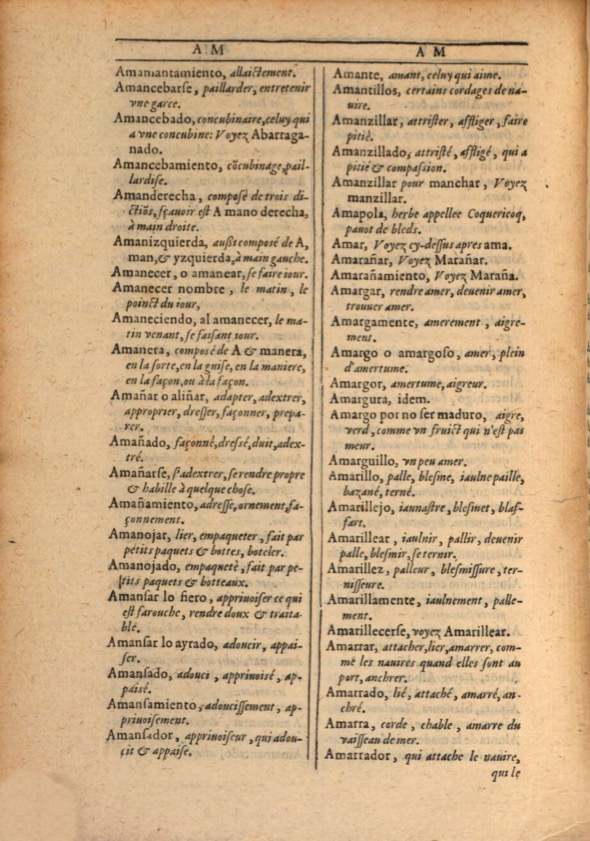 A M
Amamantamiento, allaictement.
Amancebarse, paillarder, entretenir
vne garce.
Amancebado, concubinaire, celuy qui
a vne concubine: Voyez Abarraga-
nado.
Amancebamiento, cõcubinage, pail-
lardise.
Amanderecha, composé de trois di-
ctiõs, sçauoir est A mano derecha,
à main droite.
Amanizquierda, aussi composé de A,
man, & yzquierda, à main gauche.
Amanecer, o amanear, se faire iour.
Amanecer nombre, le matin, le
poinct du iour,
Amaneciendo, al amanecer, le ma-
tin venant, se faisant iour.
Amanera, composé de A & manera,
en la sorte, en la guise, en la maniere,
en la façon, ou à la façon.
Amañar o aliñar, adapter, adextrer,
approprier, dresser, façonner, prepa-
rer.
Amañado, façonné, dressé, duit, adex-
tré.
Amañarse, s'adextrer, se rendre propre
& habille à quelque chose.
Amañamiento, adresse, ornement, fa-
çonnement.
Amanojar, lier, empaqueter, fait par
petits paquets & bottes, boteler.
Amanojado, empaqueté, fait par pe-
tits paquets & botteaux.
Amansar lo fiero, appriuoiser ce qui
est farouche, rendre doux & traita-
ble.
Amansar lo ayrado, adoucir, appai-
ser.
Amansado, adouci, appriuoisé, ap-
paisé.
Amansamiento, adoucissement, ap-
priuoisement.
Amansador, appriuoiseur, qui adou-
çit & appaise.
A M
Amante, amant, celuy qui aime.
Amantillos, certains cordages de na-
uire.
Amanzillar, attrister, affliger, faire
pitié.
Amanzillado, attristé, affligé, qui a
pitié & compassion.
Amanzillar pour manchar, Voyez
manzillar.
Amapola, herbe appellee Coquericoq,
pauot de bleds.
Amar, Voyez cy-dessus apres ama.
Amarañar, Voyez Marañar.
Amarañamiento, Voyez Maraña.
Amargar, rendre amer, deuenir amer,
trouuer amer.
Amargamente, amerement, aigre-
ment.
Amargo o amargoso, amer, plein
d'amertume.
Amargor, amertume, aigreur.
Amargura, idem.
Amargo por no ser maduro, aigre,
verd, comme vn fruict qui n'est pas
meur.
Amarguillo, vn peu amer.
Amarillo, palle, blesme, iaulne paille,
bazané, terné.
Amarillejo, iaunastre, blesmet, blas-
fart.
Amarillear, iaulnir, pallir, deuenir
palle, blesmir, se ternir.
Amarillez, palleur, blesmissure, ter-
nisseure.
Amarillamente, iaulnement, palle-
ment.
Amarillecerse, voyez Amarillear.
Amarrar, attacher, lier, amarrer, com-
me les nauires quand elles sont au
port, anchrer.
Amarrado, lié, attaché, amarré, an-
chré.
Amarra, corde, chable, amarre du
vaisseau de mer.
Amarrador, qui attache le nauire,
qui le